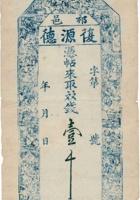 祁邑
復源德
字第
號
憑帖來取錢
壹千
年月日